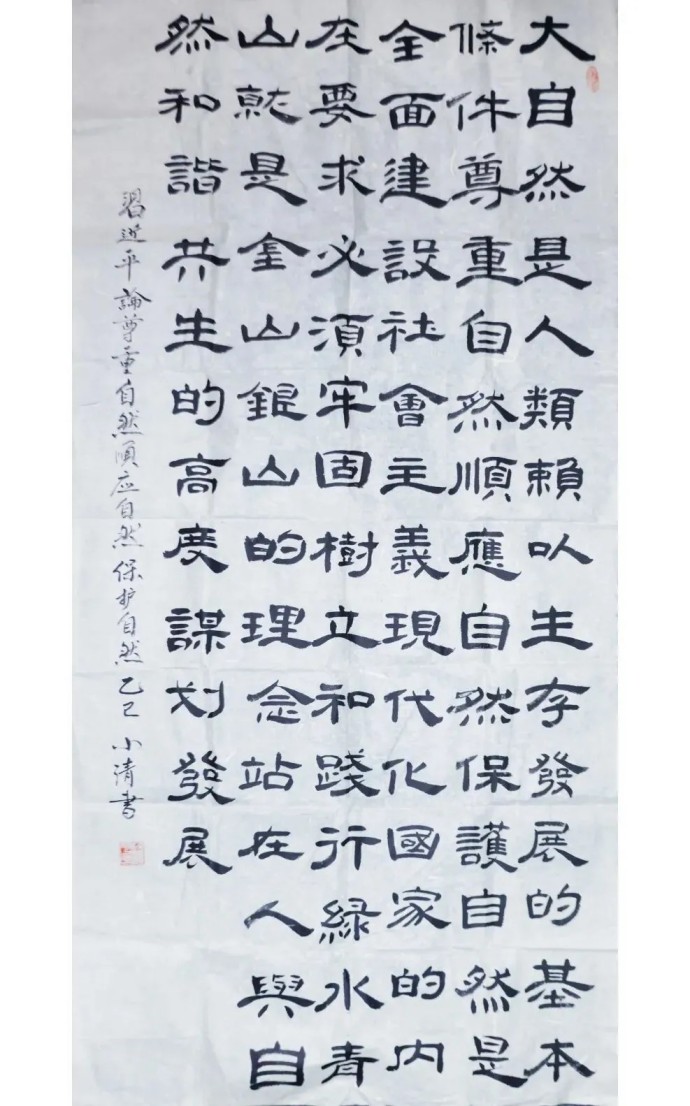 大自然是人類賴以生存發展的基本
條件尊重自然順應自然保護自然是
全面建設社會主義現代化國家的内
在要求必須牢固樹立和踐行緑水青
山就是金山銀山的理念站在人與自
然和諧共生的高度謀划發展
習近平論尊重自然順应自然保护自然乙巳小清書